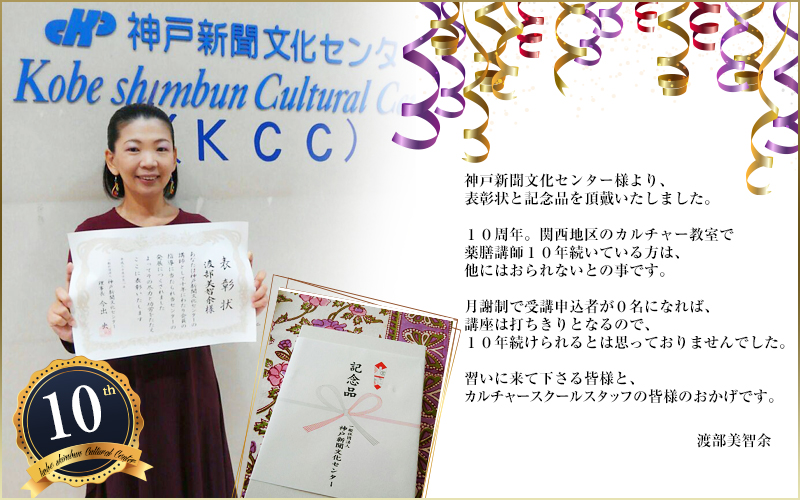 神戸新聞文化センタ
Kobe shimbun Cultural Ce
(ＫＣＣ)
表彰状
渡部美智余様
神戸新聞文化センター様より、
表彰状と記念品を頂戴いたしました。
１０周年。関西地区のカルチャー教室で
薬膳講師１０年続いている方は、
他にはおられないとの事です。
月謝制で受講申込者が０名になれば、
講座は打ちきりとなるので、
１０年続けられるとは思っておりませんでした。
習いに来て下さる皆様と、
カルチャースクールスタッフの皆様のおかげです。
渡部美智余
記念品
一般財団法人
神戸新聞文化センター
10th
kobe shimbun Cultural Center